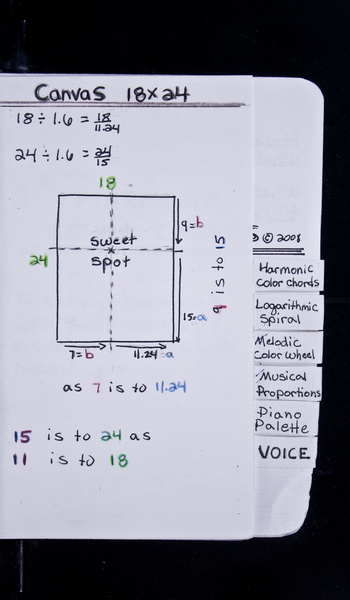 Canvas 18x24
18 ÷ 1.6 = 18/11.24
24 ÷ 1.6 = 24/15
18
9=b
sweet
24
spot
9 is to 15
15=a
7=b 11.24=a
as 7 is to 11.24
15 is to 24 as
11 is to 18
© 2008
Harmonic
Color chords
Logarithmic
Spiral
Melodic
Color wheel
Musical
Proportions
Piano
Palette
VOICE